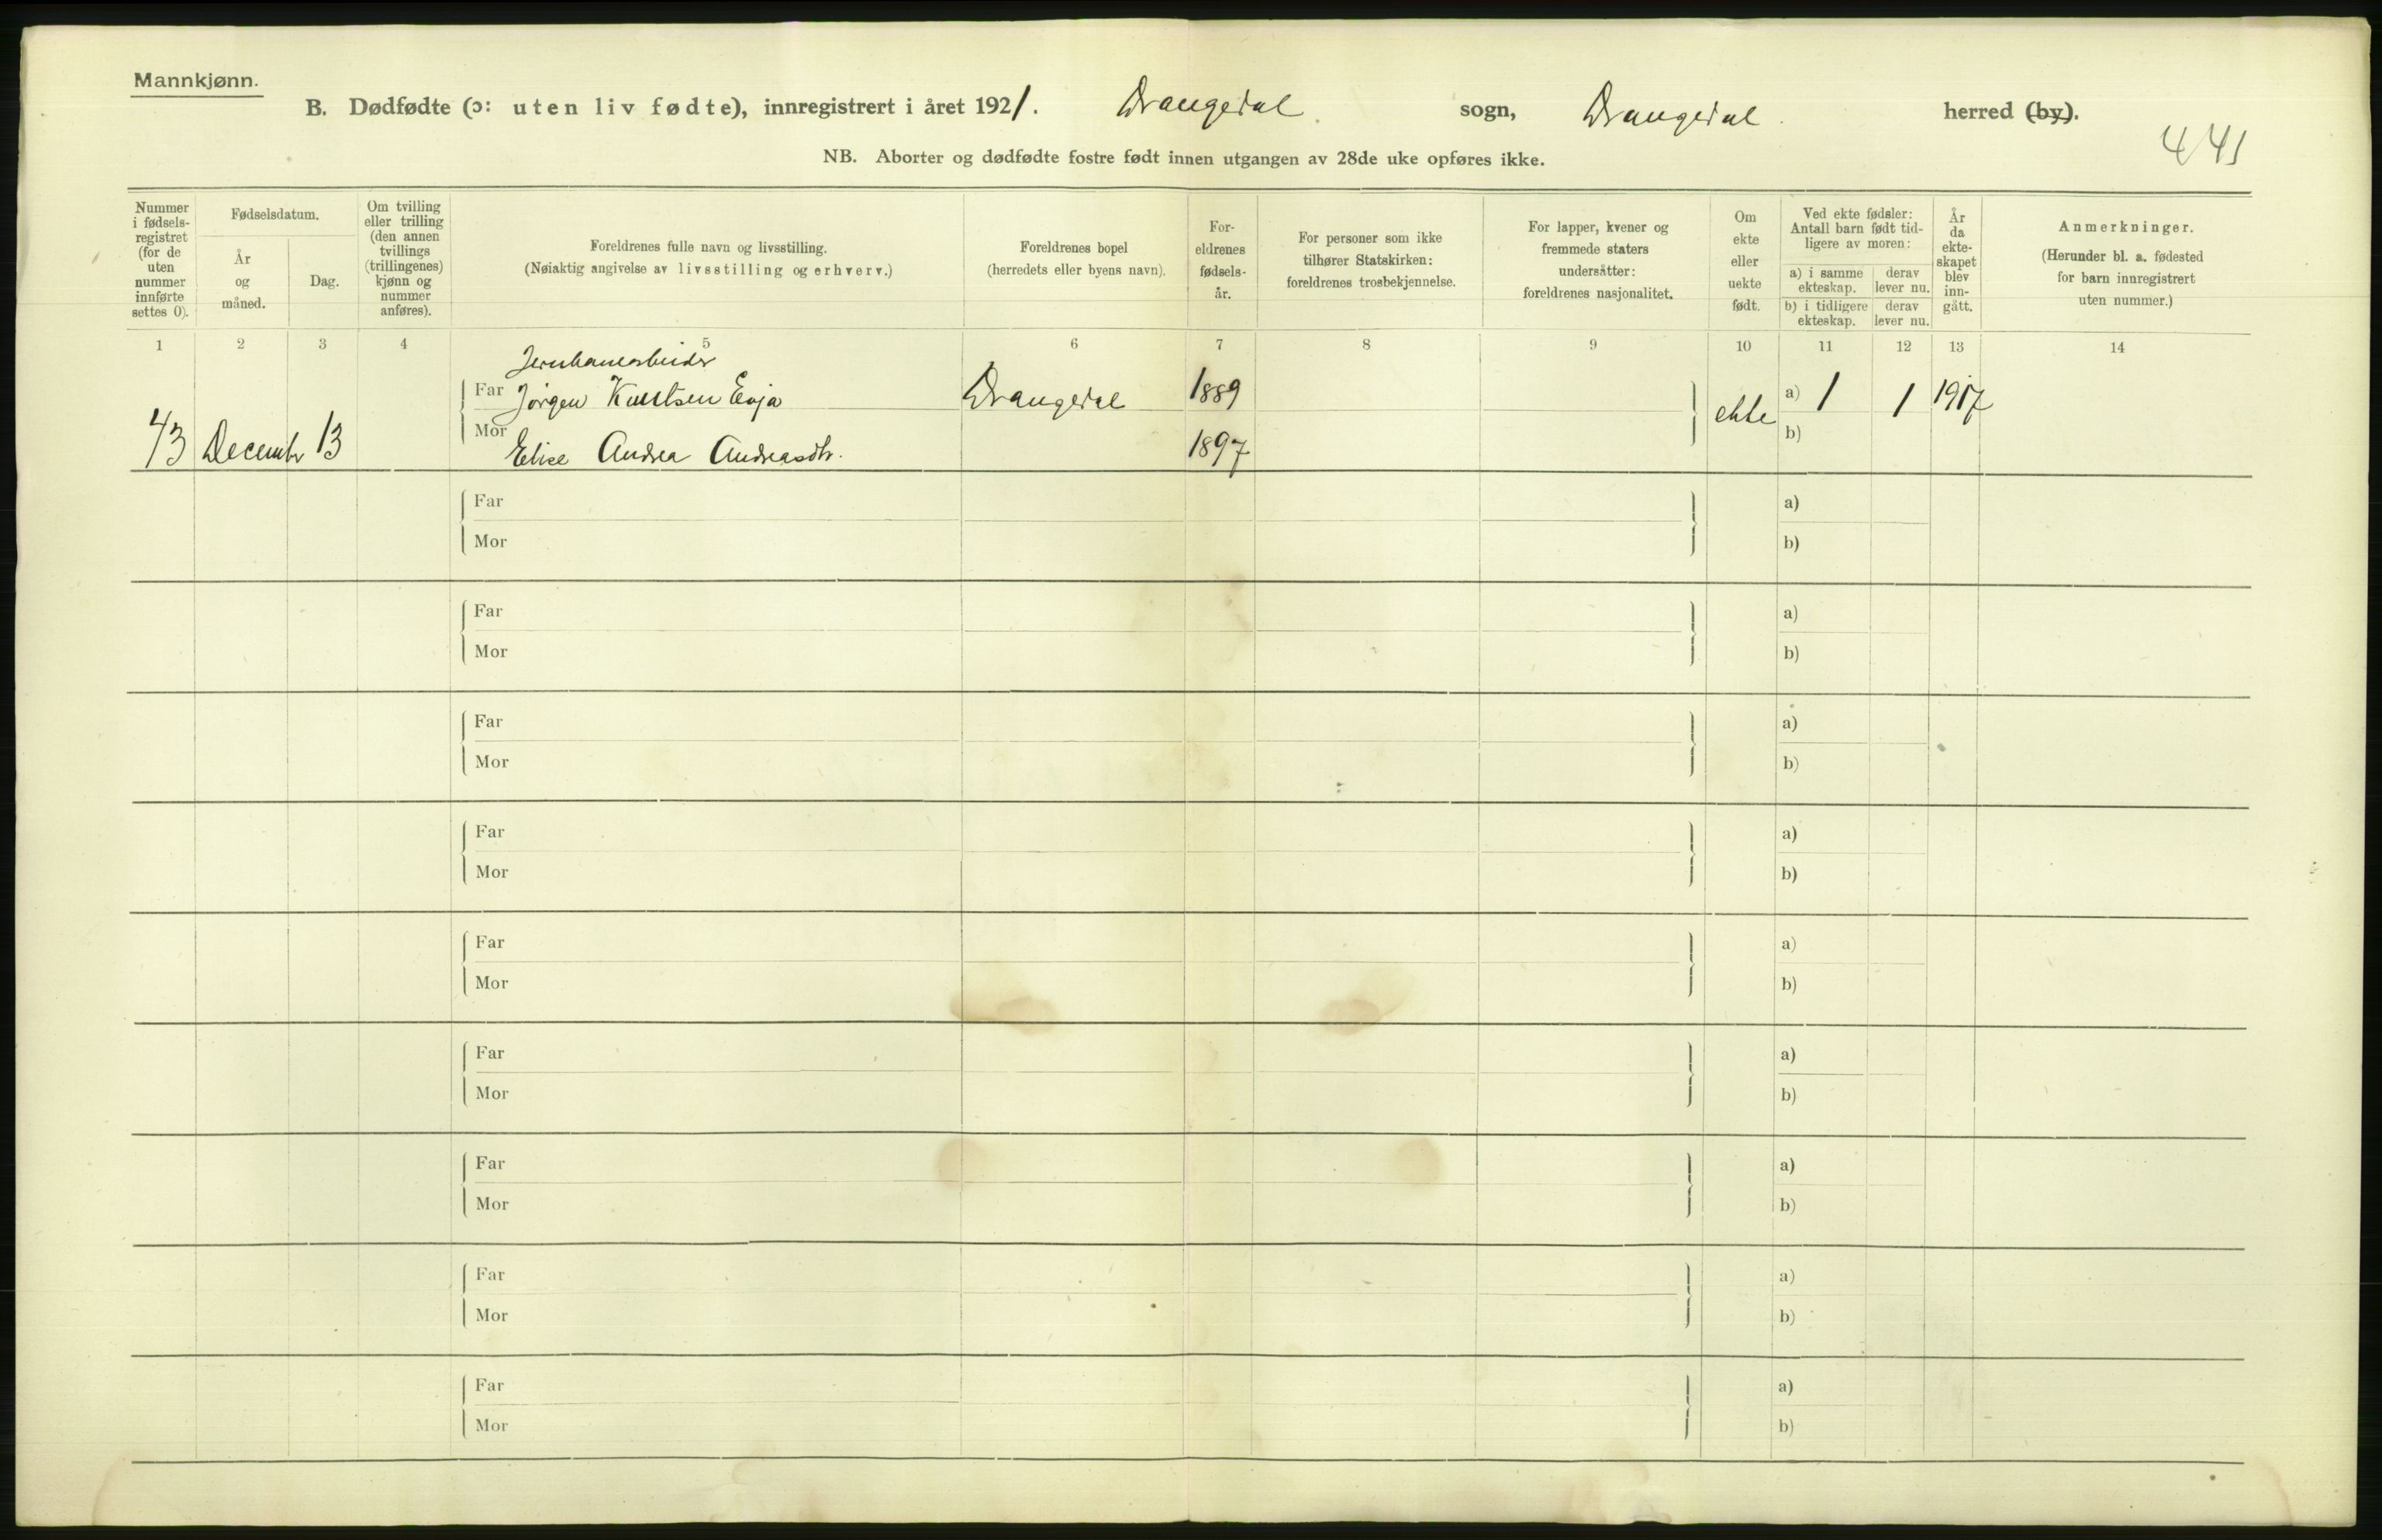 Mannkjønn.
B. Dødfødte (ɔ: uten liv fødte), innregistrert i året 1921. Drangedal sogn, Drangedal herred (by).
441
NB. Aborter og dødfødte fostre født innen utgangen av 28de uke opføres ikke.
Nummer i fødsels- registret (for de uten nummer innførte settes 0).
Fødselsdatum.
År og måned.
Dag.
Om tvilling eller trilling (den annen tvillings (trillingenes) kjønn og nummer anføres).
Foreldrenes fulle navn og livsstilling.
(Nøiaktig angivelse av livsstilling og erhverv.)
Foreldrenes bopel
(herredets eller byens navn).
For- eldrenes fødsels- år.
For personer som ikke tilhører Statskirken: foreldrenes trosbekjennelse.
For lapper, kvener og fremmede staters undersåtter: foreldrenes nasjonalitet.
Om ekte eller uekte født.
Ved ekte fødsler: Antall barn født tid- ligere av moren:
a) i samme ekteskap. derav lever nu.
b) i tidligere ekteskap. derav lever nu.
År da ekte- skapet blev inn- gått.
Anmerkninger.
(Herunder bl. a. fødested for barn innregistrert uten nummer.)
1 2 3 4 5 6 7 8 9 10 11 12 13 14
Jernbanearbeider
Far Jørgen Knutsen Evja Drangedal 1889 a) 1 1 1917
43 December 13 ekte
Mor Elise Andrea Andreasdtr. 1897 b)
Far a)
Mor b)
Far a)
Mor b)
Far a)
Mor b)
Far a)
Mor b)
Far a)
Mor b)
Far a)
Mor b)
Far a)
Mor b)
Far a)
Mor b)
Far a)
Mor b)